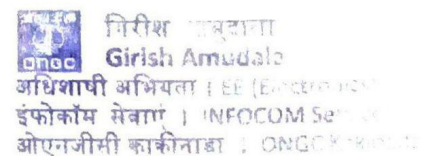 गिरीश
ONGC Girish Amudala
अधिशाषी अभियंता | EE (Electronics)
इंफोकॉम सेवाएं | INFOCOM Se
ओएनजीसी काकीनाडा | ONGC